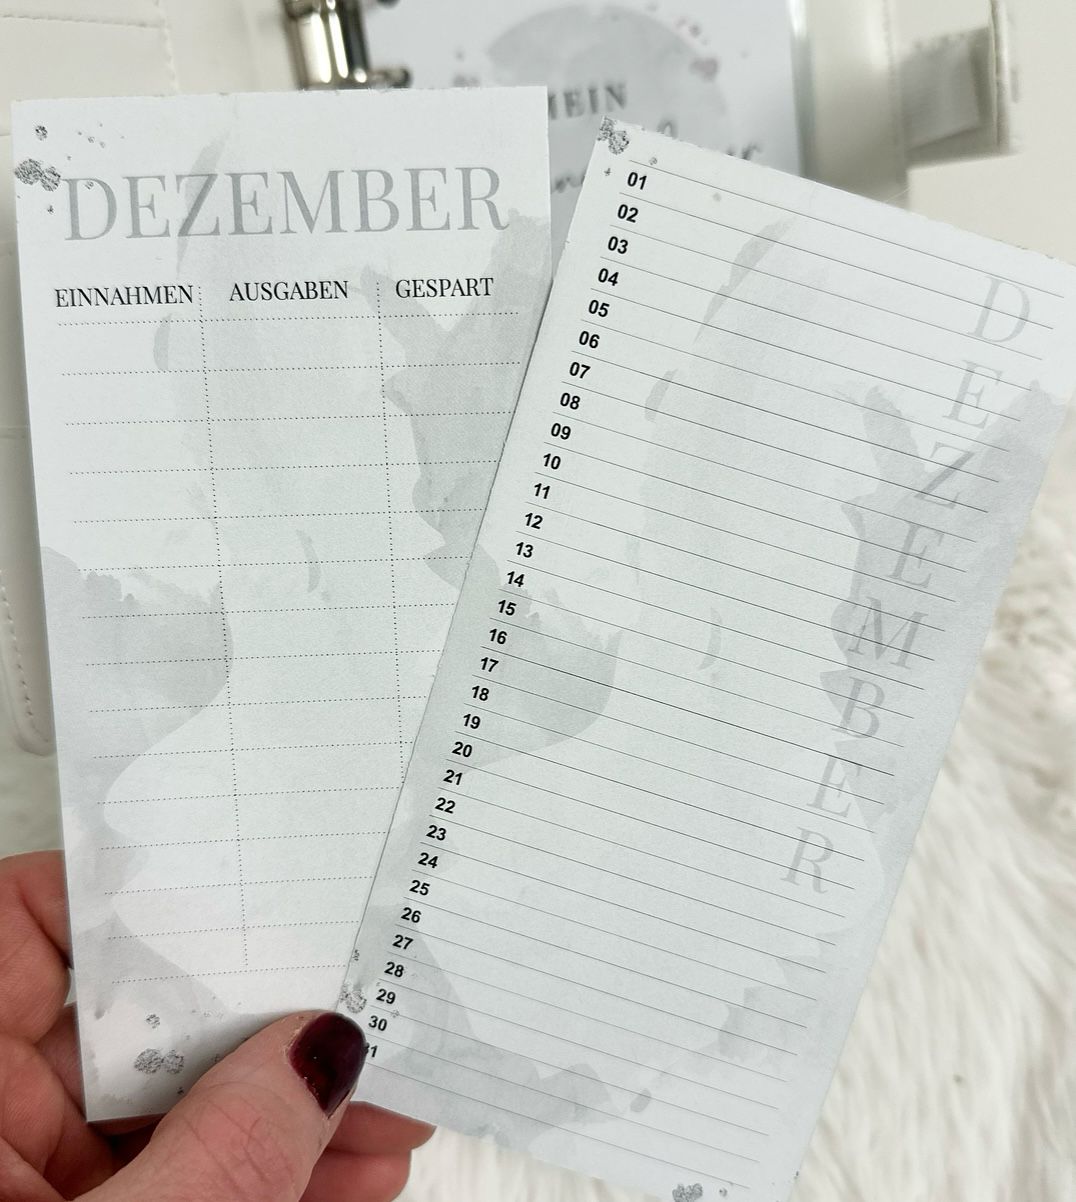 MEIN
DEZEMBER
EINNAHMEN AUSGABEN GESPART
01
02
03
04
05
06
07
08
09
10
11
12
13
14
15
16
17
18
19
20
21
22
23
24
25
26
27
28
29
30
31
D
E
Z
E
M
B
E
R